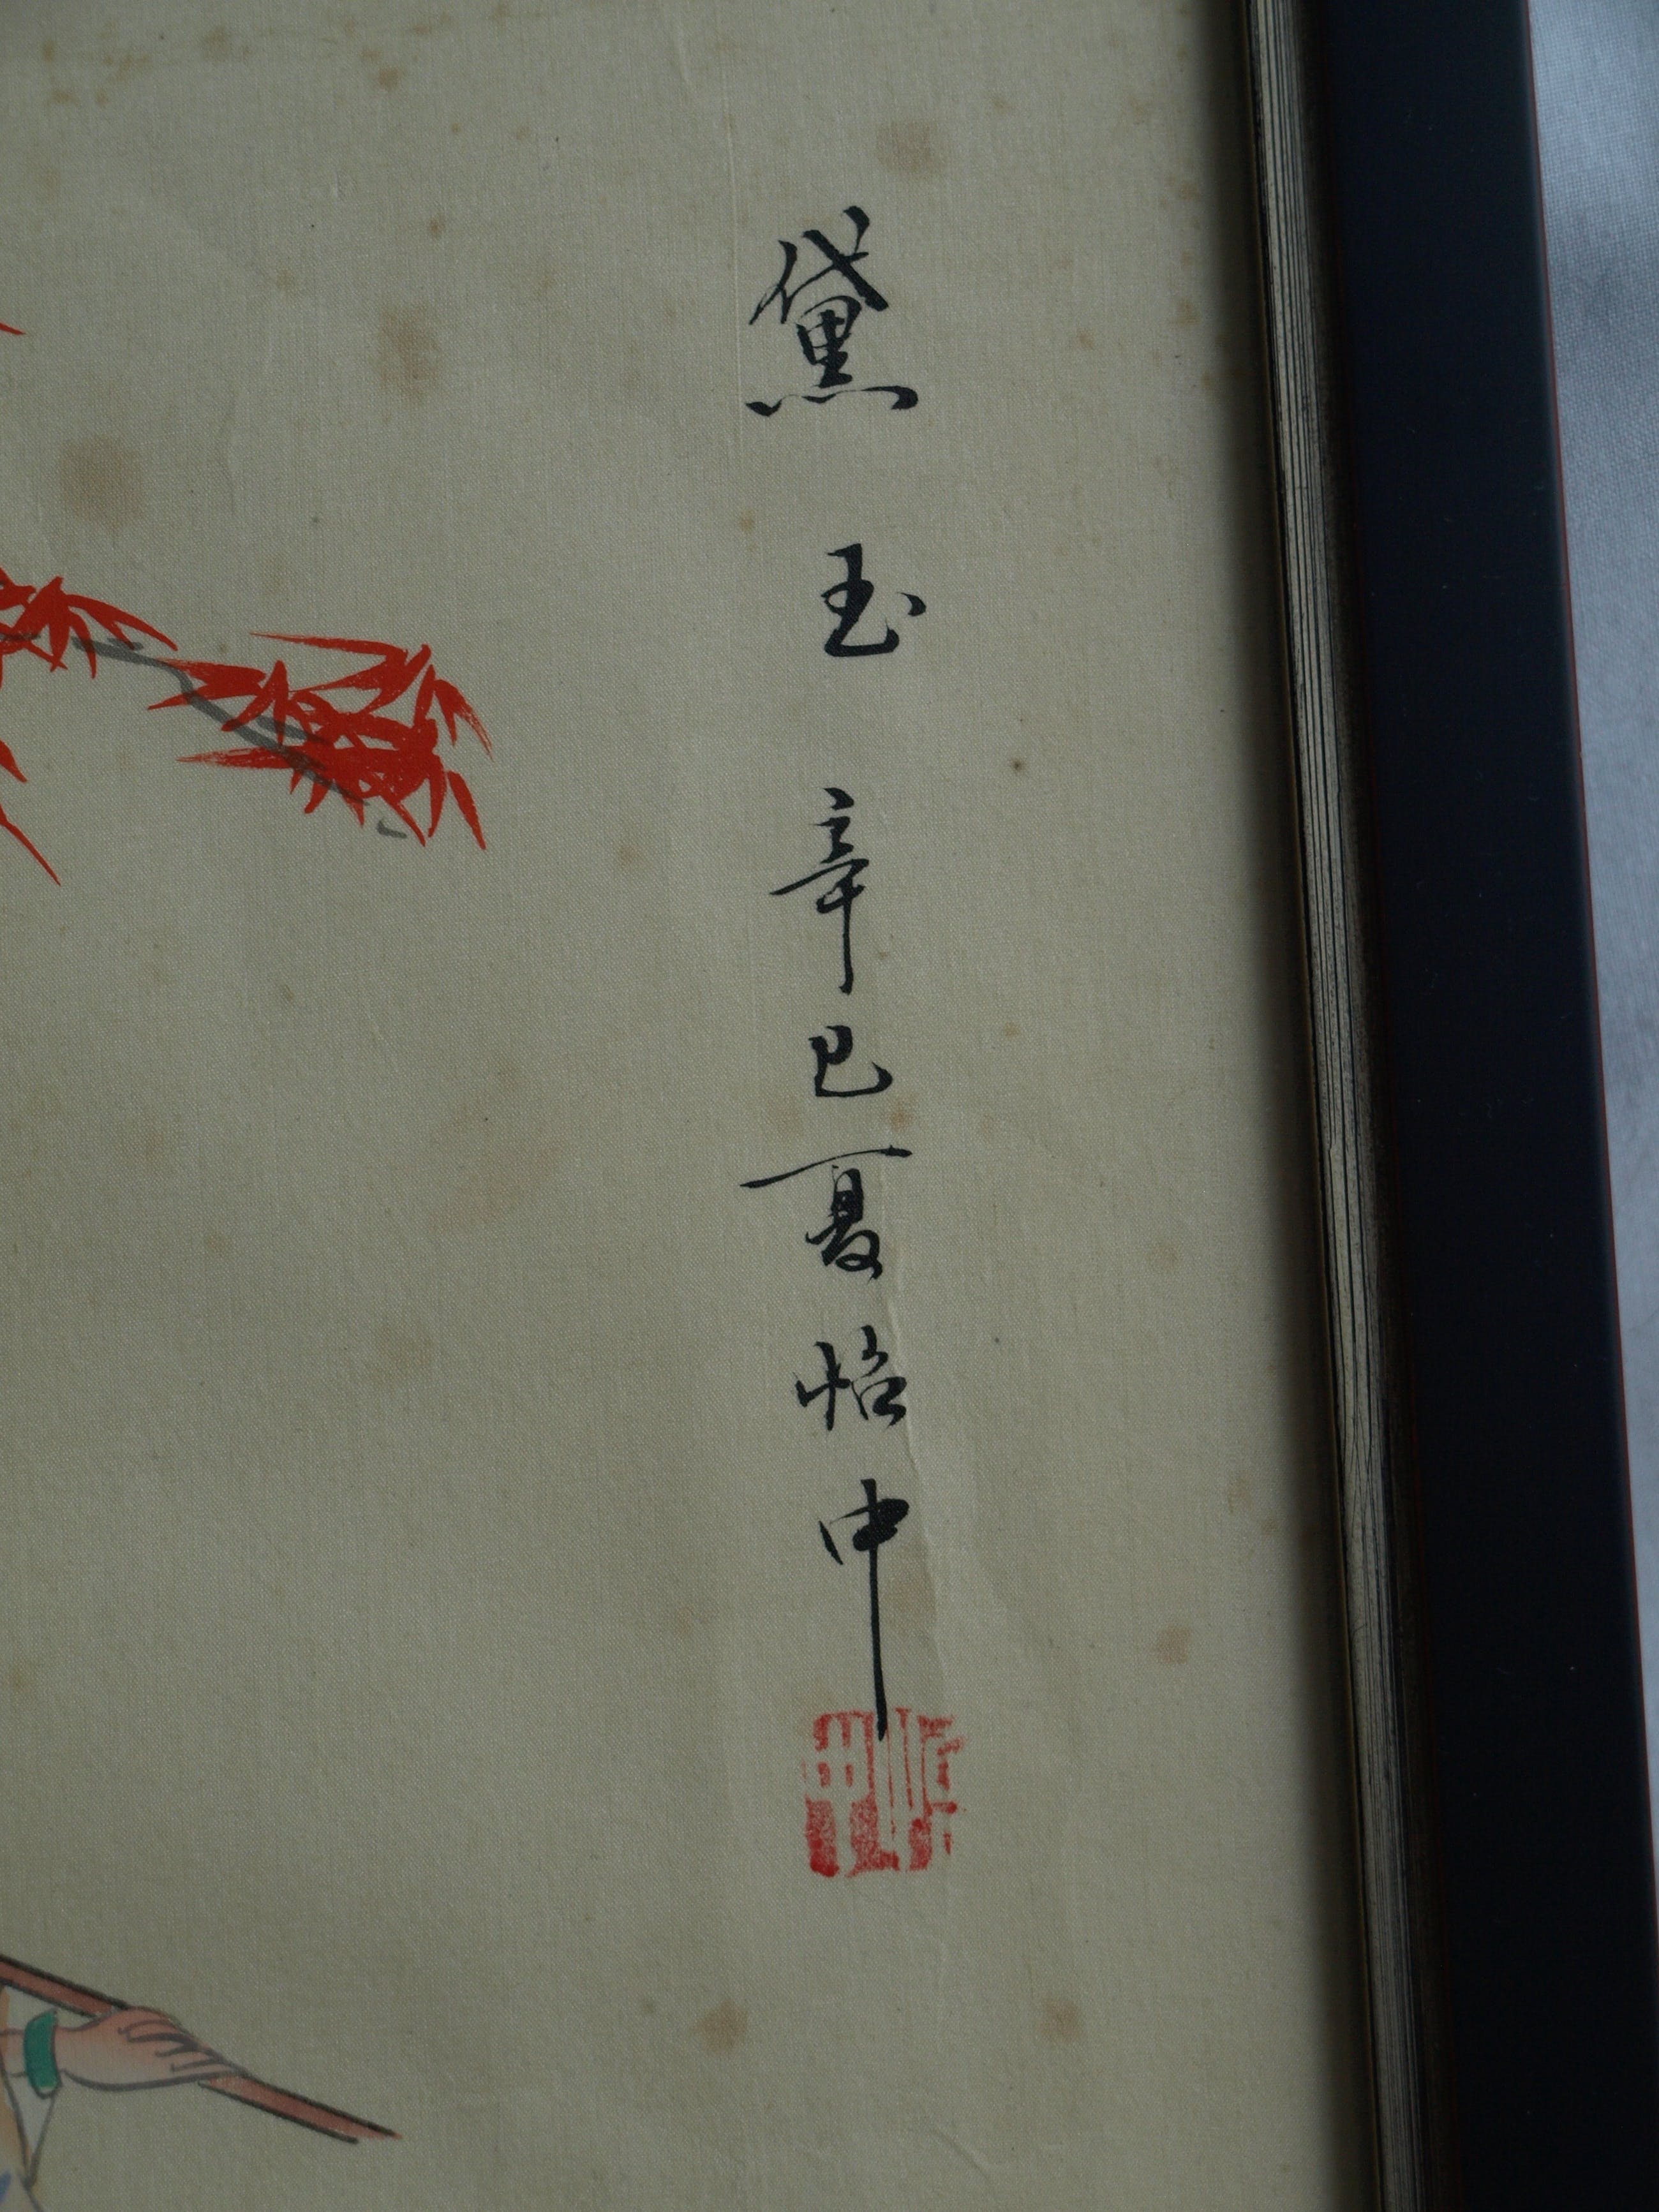 黛玉 辛巳夏怡中